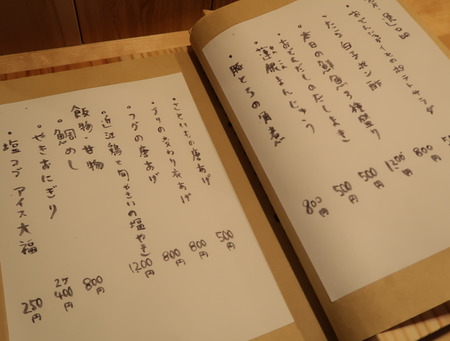 おでんじゃがいものポテトサラダ
・たら白子ポン酢 800円
・本日の鮮魚3種盛り 1200円
・おでんだしのだしまき 500円
・蓮根まんじゅう 500円
・豚とろの角煮 800円
・さといもの唐あげ 500円
・ブリの変わり衣あげ 800円
・フグの唐あげ 800円
・近江鶏と旬やさいの塩やき 1200円
飯物 甘物
・鯛めし 800円
・やきおにぎり 2ケ 400円
・塩コブアイス大福 250円